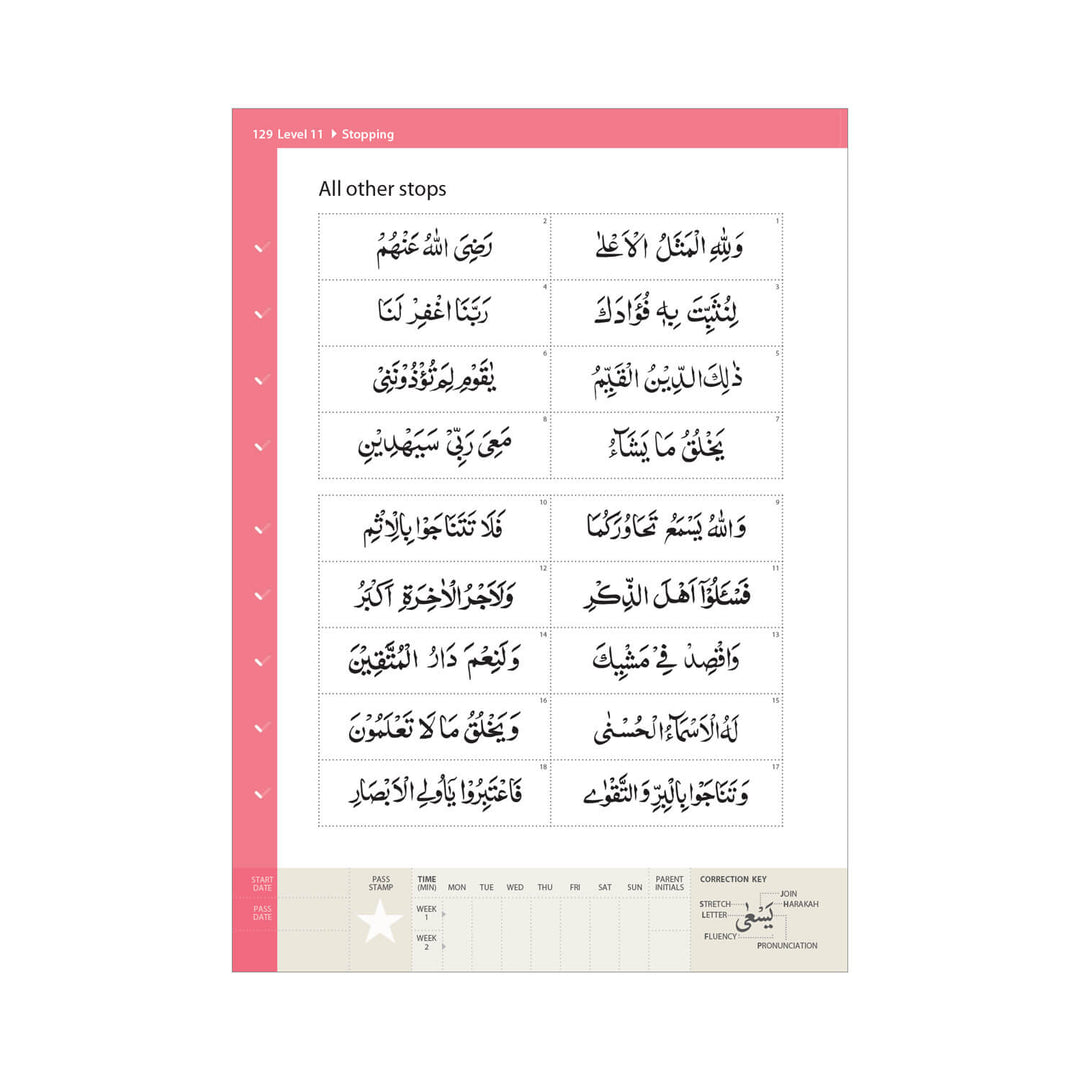 129 Level 11 ▶ Stopping
All other stops
1 وَلِلّٰهِ الْمَثَلُ الْاَعْلٰى
2 رَضِىَ اللّٰهُ عَنْهُمْ
3 لِنُثَبِّتَ بِهٖ فُؤَادَكَ
4 رَبَّنَا اغْفِرْ لَنَا
5 ذٰلِكَ الدِّيْنُ الْقَيِّمُ
6 يٰقَوْمِ لِمَ تُؤْذُوْنَنِىْ
7 يَخْلُقُ مَا يَشَآءُ
8 مَعِىَ رَبِّىْ سَيَهْدِيْنِ
9 وَاللّٰهُ يَسْمَعُ تَحَاوُرَكُمَا
10 فَلَا تَتَنَاجَوْا بِالْاِثْمِ
11 فَسْـَٔلُوْٓا اَهْلَ الذِّكْرِ
12 وَلَاَجْرُ الْاٰخِرَةِ اَكْبَرُ
13 وَاقْصِدْ فِىْ مَشْيِكَ
14 وَلَنِعْمَ دَارُ الْمُتَّقِيْنَ
15 لَهُ الْاَسْمَآءُ الْحُسْنٰى
16 وَيَخْلُقُ مَا لَا تَعْلَمُوْنَ
17 وَتَنَاجَوْا بِالْبِرِّ وَالتَّقْوٰى
18 فَاعْتَبِرُوْا يٰٓاُولِى الْاَبْصَارِ
START DATE
PASS DATE
PASS STAMP
TIME (MIN) MON TUE WED THU FRI SAT SUN
WEEK 1
WEEK 2
PARENT INITIALS
CORRECTION KEY
JOIN
STRETCH
HARAKAH
LETTER
يَسْعٰى
FLUENCY
PRONUNCIATION